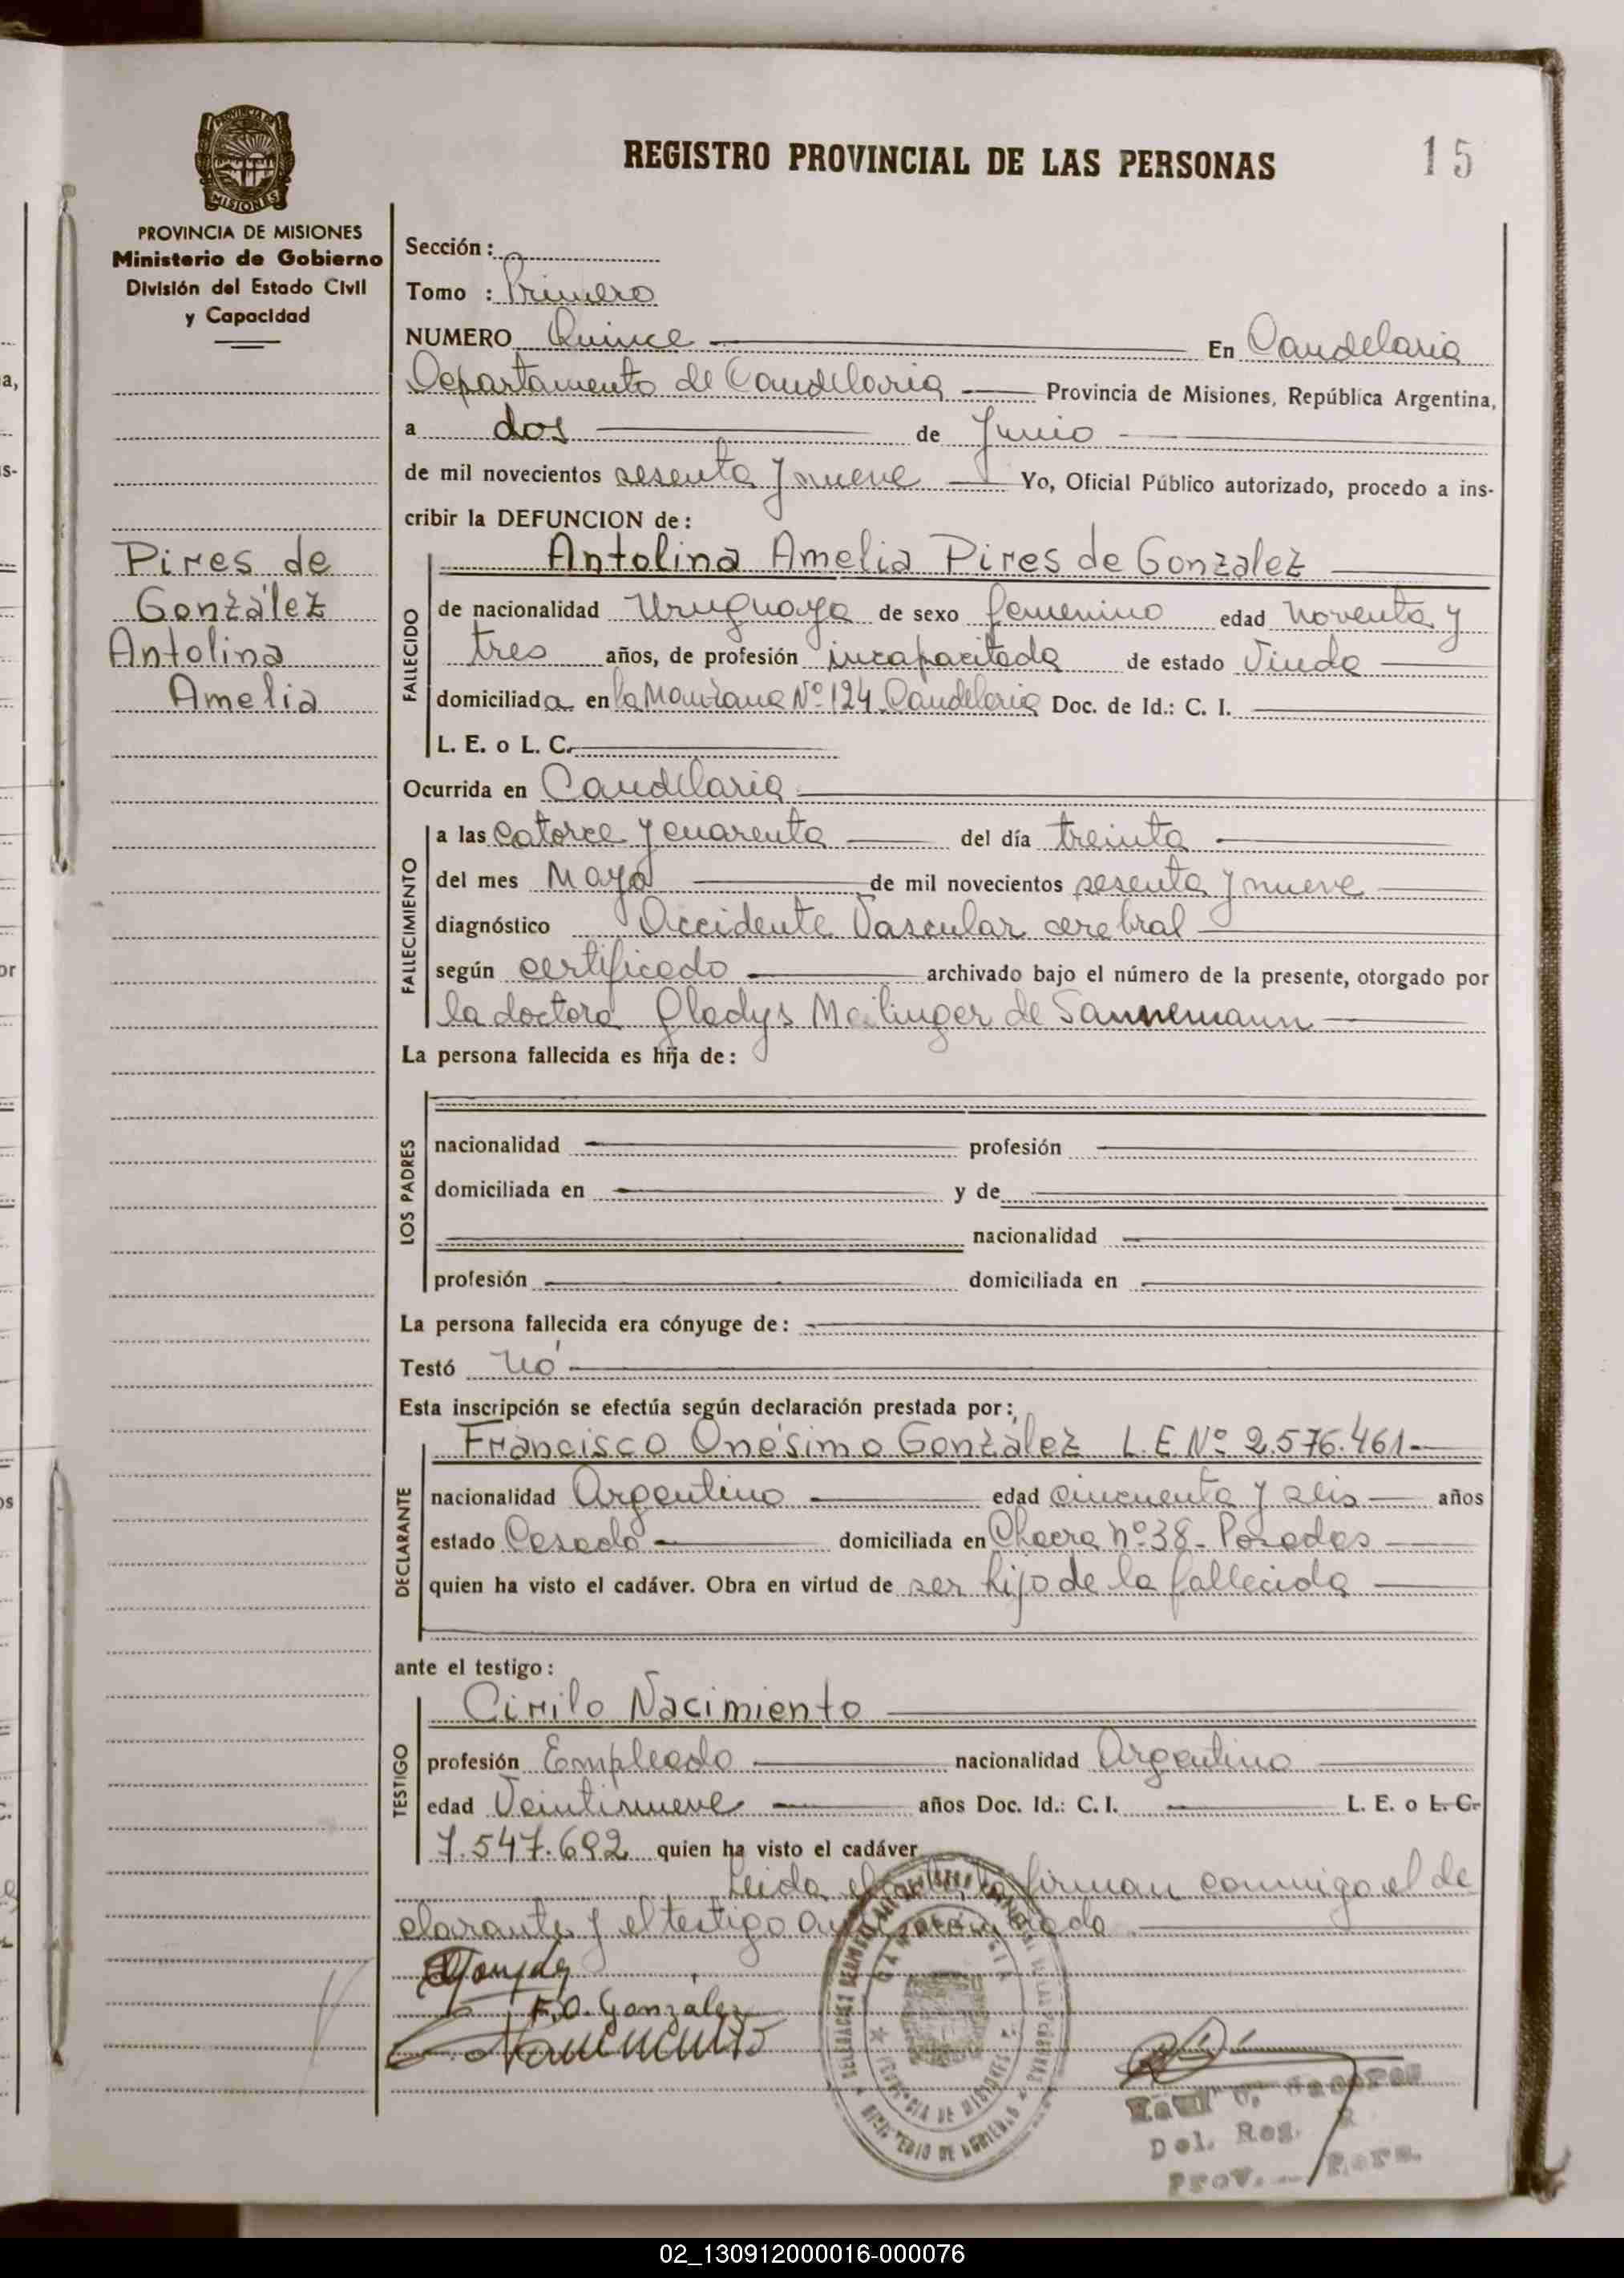 REGISTRO PROVINCIAL DE LAS PERSONAS
15
PROVINCIA DE MISIONES
Ministerio de Gobierno
División del Estado Civil
y Capacidad
Pires de
González
Antolina
Amelia
Sección:
Tomo : Primero
NUMERO Quince En Candelaria
Departamento de Candelaria Provincia de Misiones, República Argentina,
a dos de Junio
de mil novecientos sesenta y nueve Yo, Oficial Público autorizado, procedo a ins-
cribir la DEFUNCION de:
FALLECIDO
Antolina Amelia Pires de Gonzalez
de nacionalidad Uruguaya de sexo femenino edad noventa y
tres años, de profesión incapacitada de estado Viuda
domiciliada en la Manzana Nº 124 Candelaria Doc. de Id.: C. I.
L. E. o L. C.
Ocurrida en Candelaria
FALLECIMIENTO
a las catorce y cuarenta del día treinta
del mes Mayo de mil novecientos sesenta y nueve
diagnóstico Accidente Vascular cerebral
según certificado archivado bajo el número de la presente, otorgado por
la doctora Gladys Meilinger de Sannemann
La persona fallecida es hija de:
LOS PADRES
nacionalidad profesión
domiciliada en y de
nacionalidad
profesión domiciliada en
La persona fallecida era cónyuge de:
Testó nó
Esta inscripción se efectúa según declaración prestada por:
DECLARANTE
Francisco Onésimo González L.E Nº 2.576.461-
nacionalidad Argentino edad cincuenta y seis años
estado Casado domiciliada en Chacra nº 38- Posadas
quien ha visto el cadáver. Obra en virtud de ser hijo de la fallecida
ante el testigo:
TESTIGO
Cirilo Nacimiento
profesión Empleado nacionalidad Argentino
edad Veintinueve años Doc. Id.: C. I. L. E. o L. C.
7.547.692 quien ha visto el cadáver
Leida el acta, la firman conmigo el de
clarante y el testigo
F.O. González
Nacimiento
PROVINCIA DE MISIONES
MINISTERIO DE GOBIERNO
Del. Reg.
Prov. Pers.
02_130912000016-000076